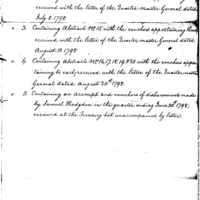 received with the letter of the Quarter master General dated
July 8. 1798.
No. 3. Containing Abstract No. 15 with the vouchers appertaining thereto
received with the letter of the Quarter master General dated
August 10. 1798.
4. Containing Abstracts No. 16, 17, 18, 19 & 20 with the vouchers apper-
taining to each, received with the letter of the Quarter master
General dated August 20th 1798.
5. Containing an account and vouchers of disbursements made
by Samuel Hodgdon in the quarter ending June 30th 1798,
received at the Treasury but unaccompanied by letter.